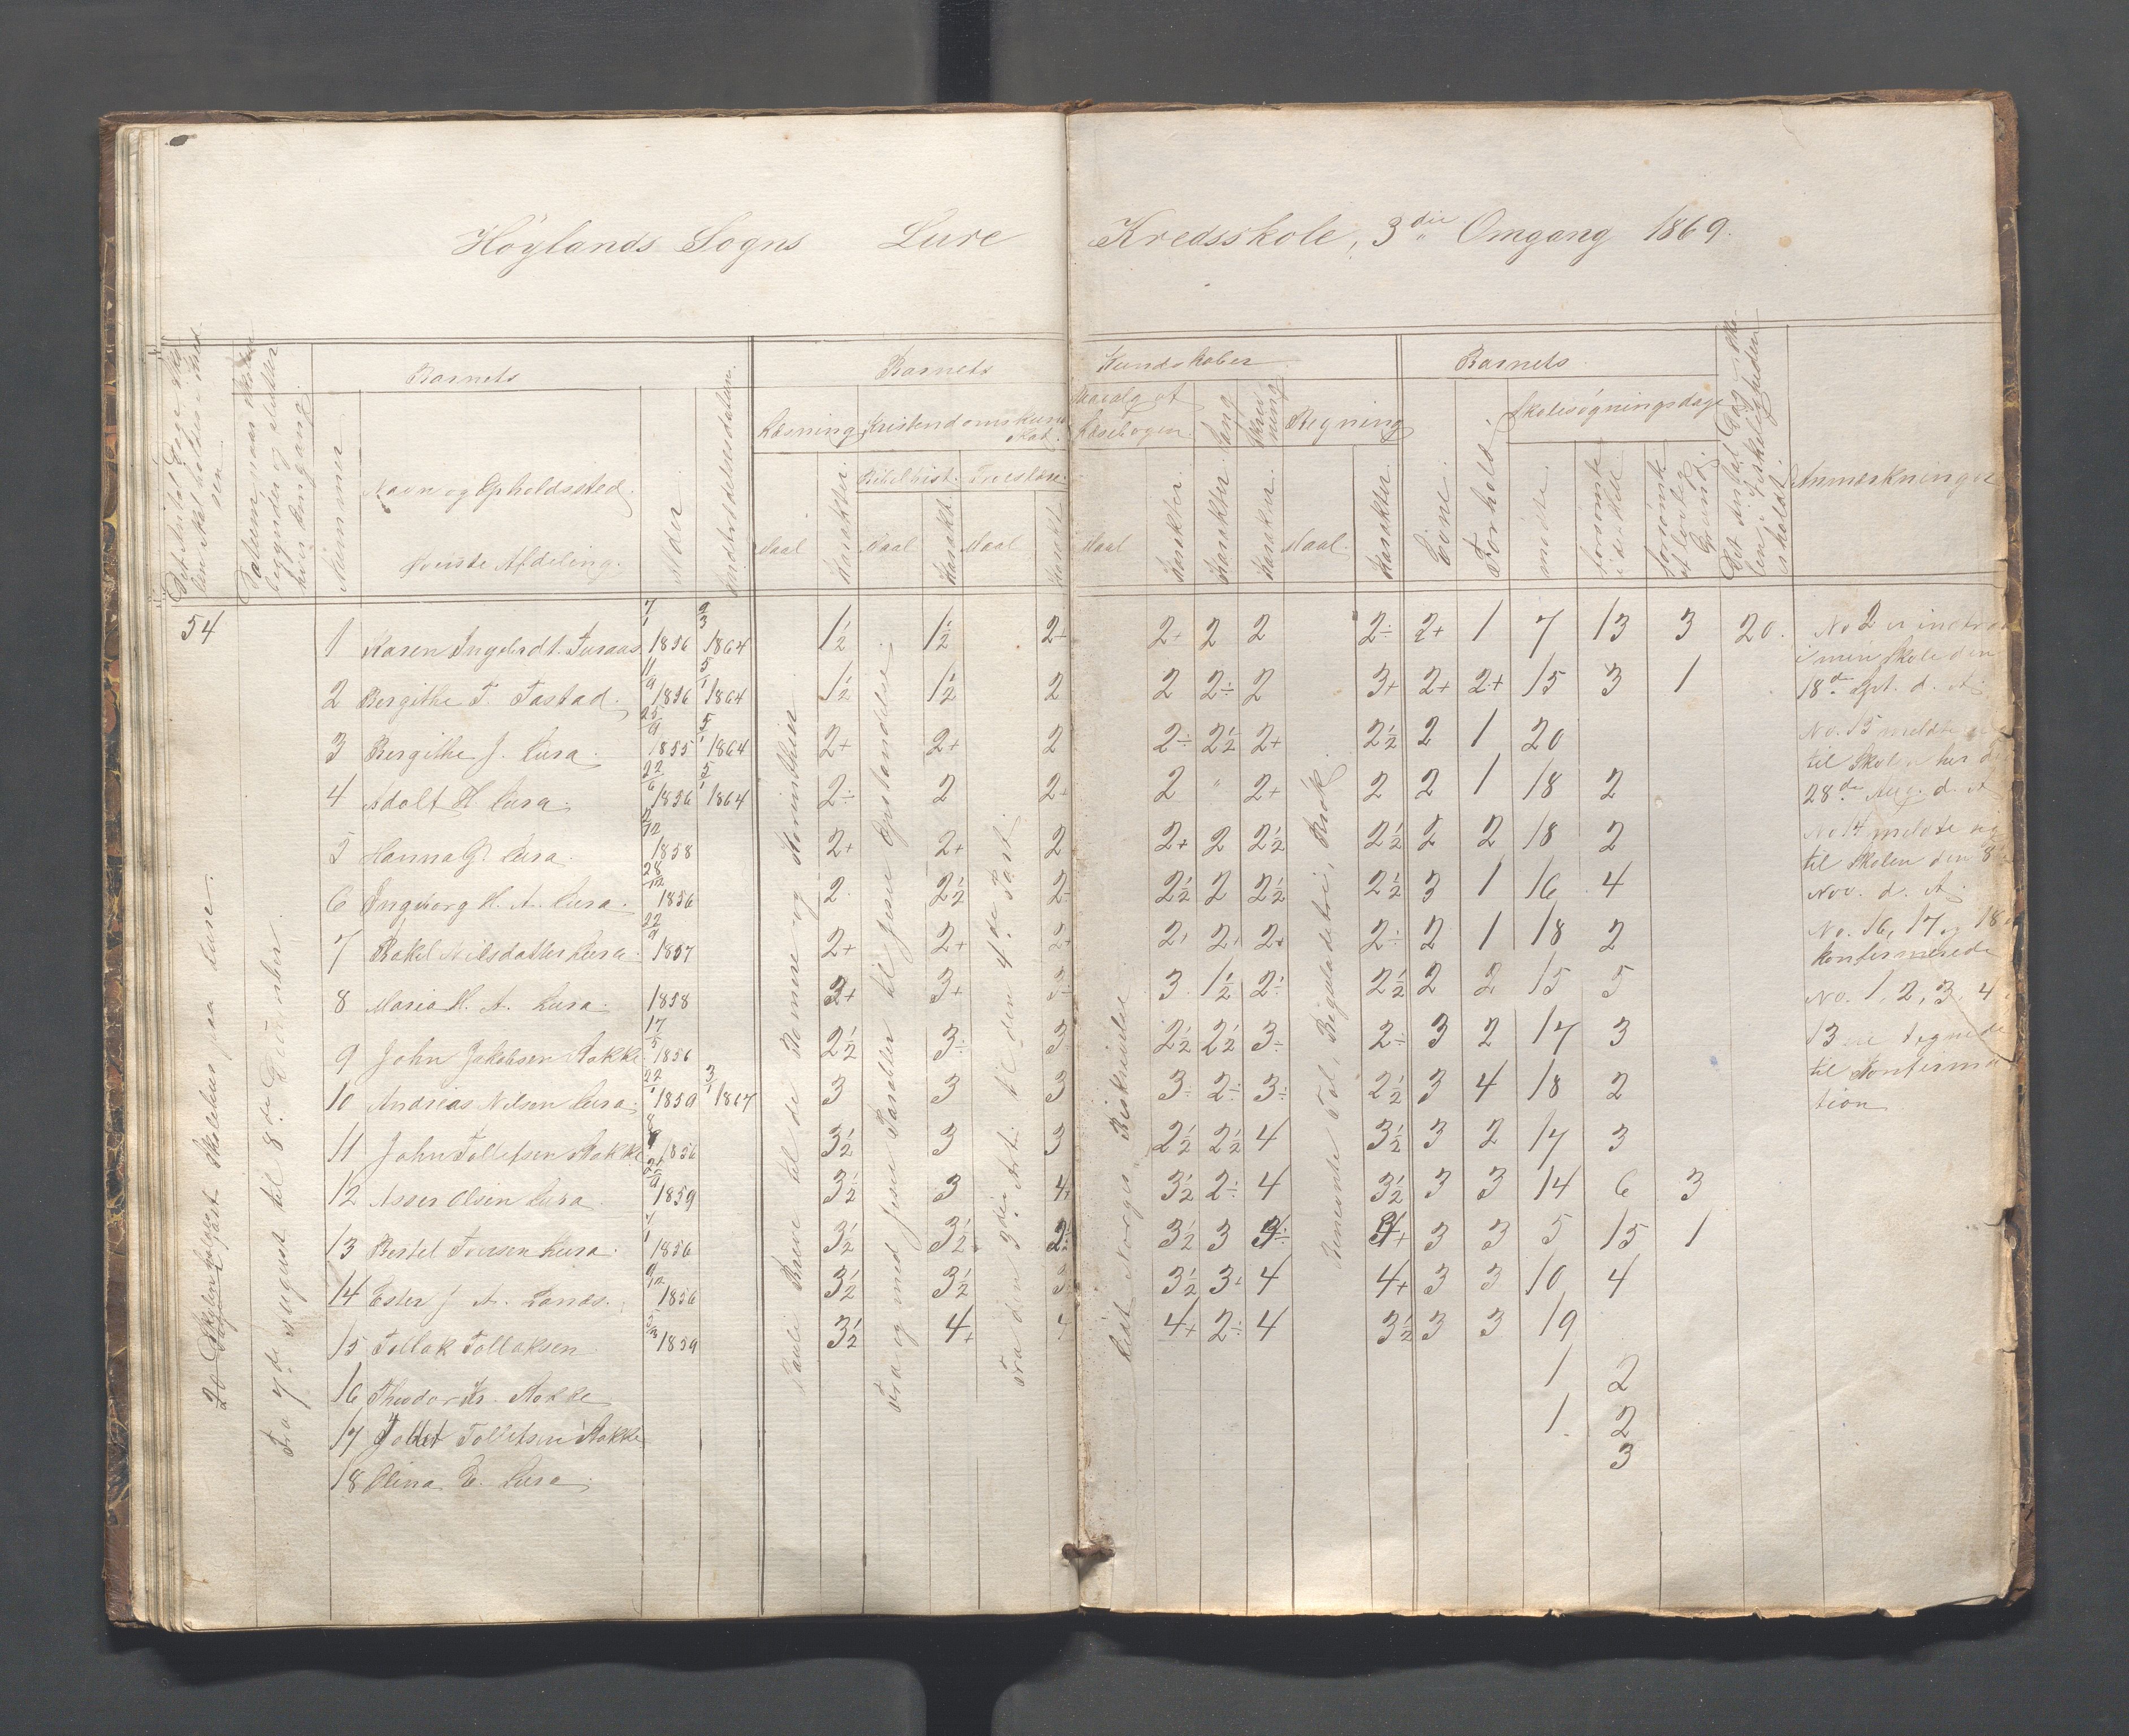 Höylands Sogns Lure Kredsskole, 3die Omgang 1869.
Barnets
Barnets Kundskaber
Barnets
Læsning Kristendomskundskab.
Læsebogen. Sang Skrivning Regning
Skolesøgningsdage
Nummer
Navn og Opholdssted.
Øverste Afdeling.
Alder
Indtrædelsesdatum.
Maal Karakter. Bibelhist. Troeslære.
Maal Karakt. Maal Karakt.
Maal Karakter. Karakter Karakter. Maal. Karakter.
Evne. Forhold. mødte. forsømte
Anmærkninger
54
20 Skoledage paa Lure.
Fra 7de August til 8de
Pauli Breve til de Romere og Korinthier
Fra og med Jesu Parabler til Jesu Opstandelse.
Fra den 3die Art. til den 4de Part.
Lidt Norges Beskrivelse
Ubenævnte Tal, Reguladetri, Brøk.
1 Karen Ingebrdt. Furaas 7/1 1856 9/3 1864 1½ 1½ 2+ 2+ 2 2 2÷ 2+ 1 7 13 3 20.
2 Bergithe T. Tastad. 11/9 1856 5/1 1864 1½ 1½ 2 2 2÷ 2 3+ 2+ 2+ 15 3 1
3 Bergithe J. Lura. 25/9 1855 5/1 1864 2+ 2+ 2 2÷ 2½ 2+ 2½ 2 1 20
4 Adolf H. Lura. 22/6 1856 5/1 1864 2÷ 2 2+ 2 " 2+ 2 2 1 18 2
5 Hanna G. Lura. 2/12 1858 2+ 2+ 2 2+ 2 2½ 2½ 2 2 18 2
6 Ingeborg H. A. Lura. 28/12 1856 2 2½ 2÷ 2½ 2 2½ 2½ 3 1 16 4
7 Rakel Nilsdatter Lura. 22/9 1857 2+ 2+ 2+ 2+ 2+ 2+ 2÷ 2 1 18 2
8 Maria H. A. Lura. 1858 2+ 3+ 3÷ 3 1½ 2÷ 2½ 2 2 15 5
9 John Jakobsen Stokke 17/5 1856 2½ 3÷ 3 2½ 2½ 3÷ 2÷ 3 2 17 3
10 Andreas Nilsen Lura. 22/1 1859 3/1 1867 3 3 3 3÷ 2÷ 3÷ 2½ 3 4 18 2
11 John Tollefsen Stokke 1856 3½ 3 3 2½ 2½ 4 3½ 3 2 17 3
12 Asser Olsen Lura. 1859 3½ 3 4+ 3½ 2÷ 4 3½ 3 3 14 6 3
13 Bertel Tonsen Lura. 7/1 1856 3½ 3½ 3½ 3 4+ 3 3 5 15 1
14 Ester J. A. Lands. 9/12 1856 3½ 3½ 3 3½ 3+ 4 4+ 3 3 10 4
15 Tollak Tollaksen 1859 3½ 4+ 4 4+ 2÷ 4 3½ 3 3 19
16 Theodor Kr. Stokke 1 2
17 Tollefsen Stokke 1 2
18 Olina E. Lura. 3
No 2 er indtraadt
i min Skole den
18de Spt. d. A.
No. 15 meldte
til Skolen her
28de Aug. d. A
No 14 meldte sig
til Skolen den 8
Nov. d. A.
No. 16, 17 og 18
konfirmerede
No. 1, 2, 3, 4,
13 ere tegnede
til Konfirma
tion